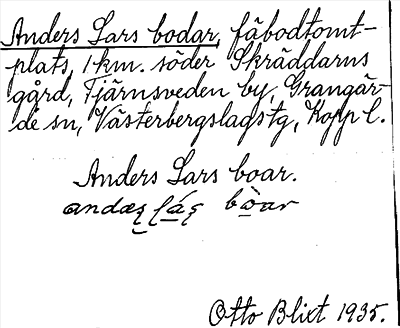 Anders Lars bodar, fäbodtomt-
plats, 1 km. söder Skräddarns
gård, Tjärnsveden by, Grangär-
de sn, Västerbergslags tg, Kopp l.
Anders Lars boar.
bòar
Otto Blixt 1935.